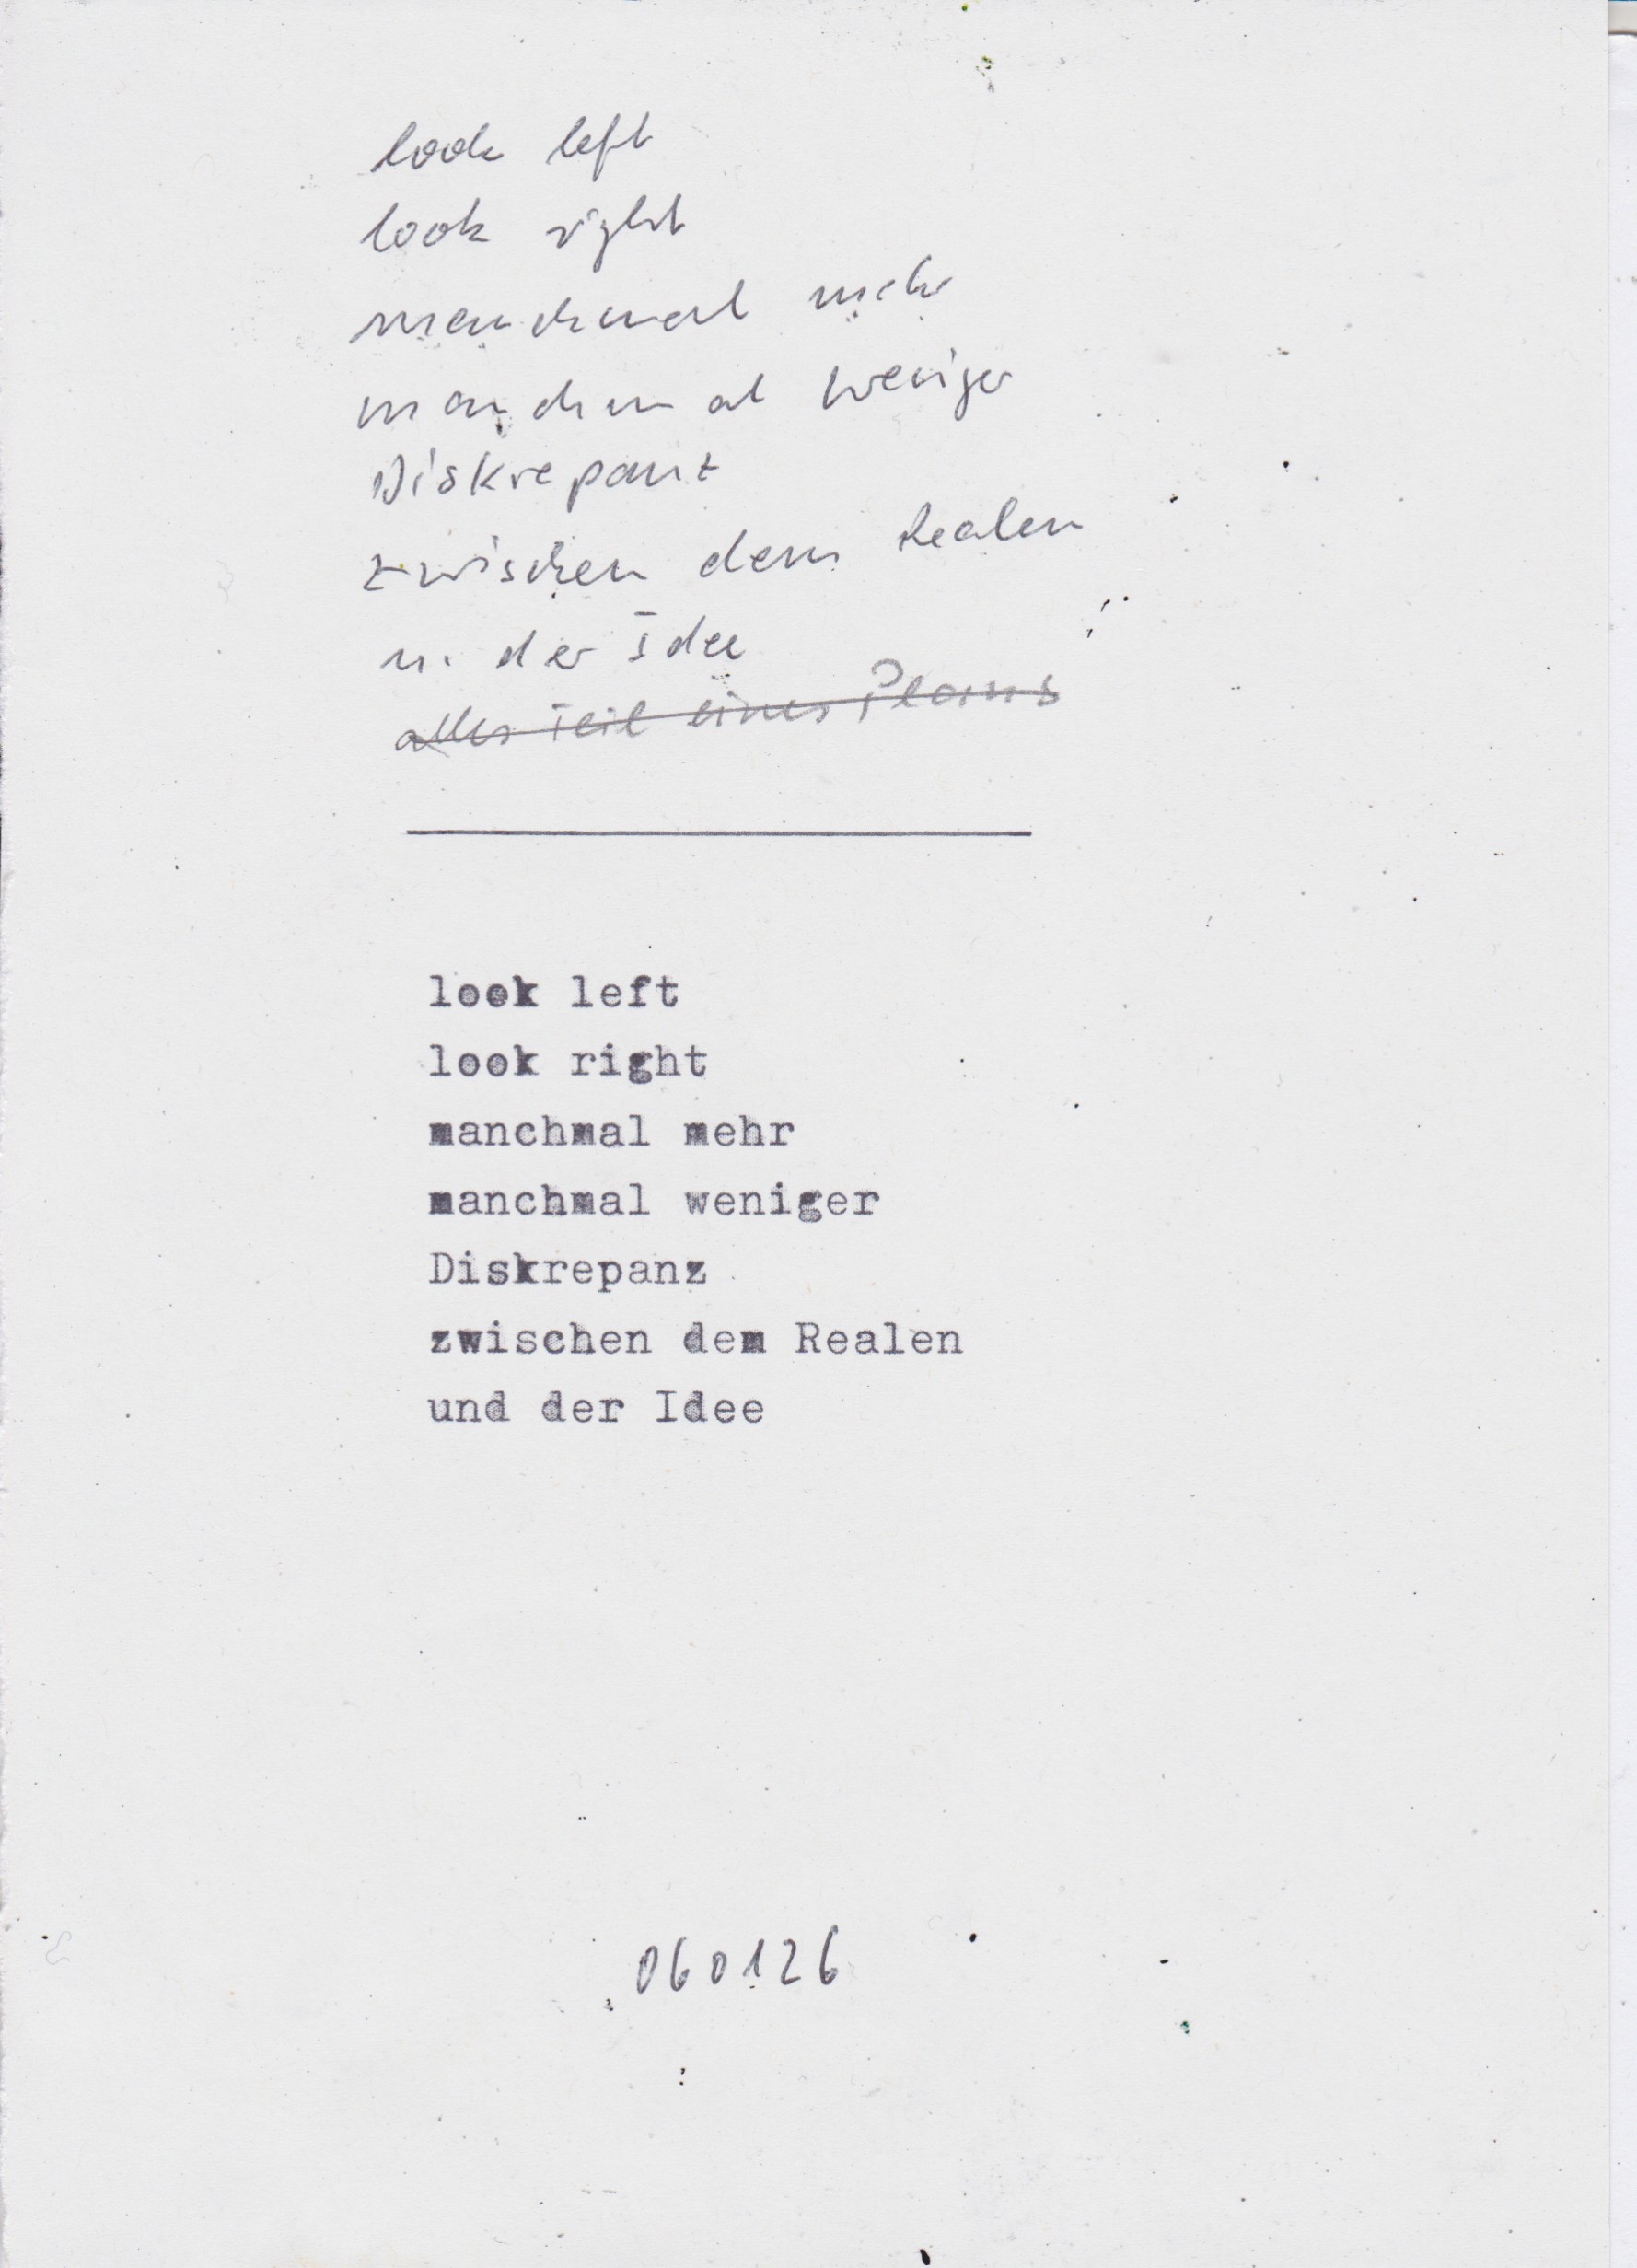 look left
look right
manchmal mehr
manchmal weniger
Diskrepanz
zwischen dem Realen
u. der Idee
alles Teil eines Plans
look left
look right
manchmal mehr
manchmal weniger
Diskrepanz
zwischen dem Realen
und der Idee
060126